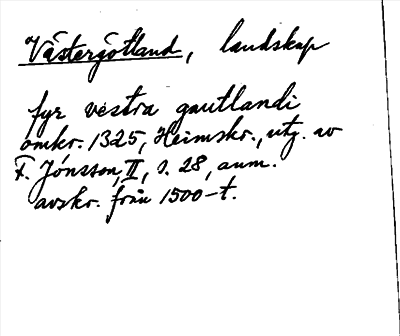 Västergötland, landskap
fyr vestra gautlandi
omkr. 1325, Heimskr., utg. av
F. Jónsson, II, s. 28, anm.
avskr. från 1500-t.